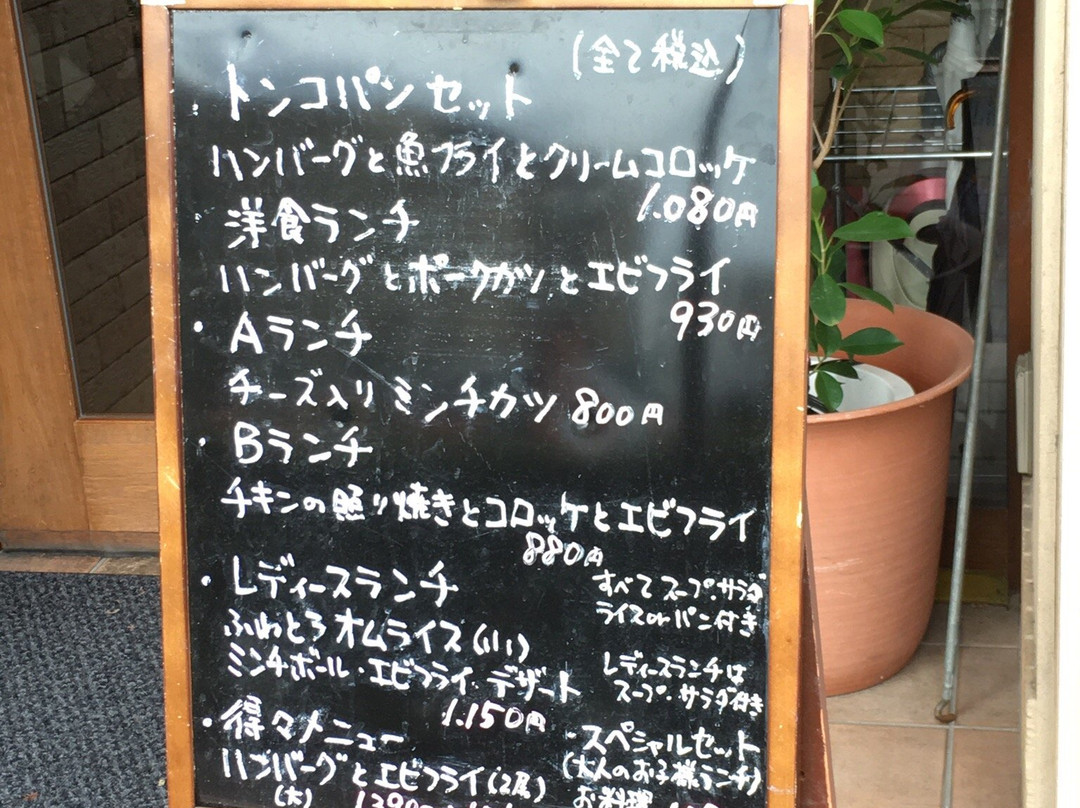 (全て税込)
・トンコパンセット
ハンバーグと魚フライとクリームコロッケ
1.080円
・洋食ランチ
ハンバーグとポークカツとエビフライ
930円
・Aランチ
チーズ入りミンチカツ 800円
・Bランチ
チキンの照り焼きとコロッケとエビフライ
880円
・レディースランチ
ふわとろオムライス(小)
ミンチボール・エビフライ・デザート
1.150円
すべてスープ・サラダ
ライスorパン付き
レディースランチは
スープ・サラダ付き
・得々メニュー
ハンバーグとエビフライ(2尾)
(大)
・スペシャルセット
(大人のお子様ランチ)
お料理